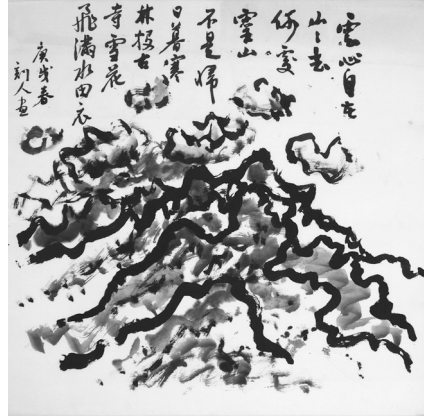 雲心自在
山〻去
何處
靈山
不是歸
日暮寒
林投古
寺雪花
飛滿水田衣
庚戌春
人画